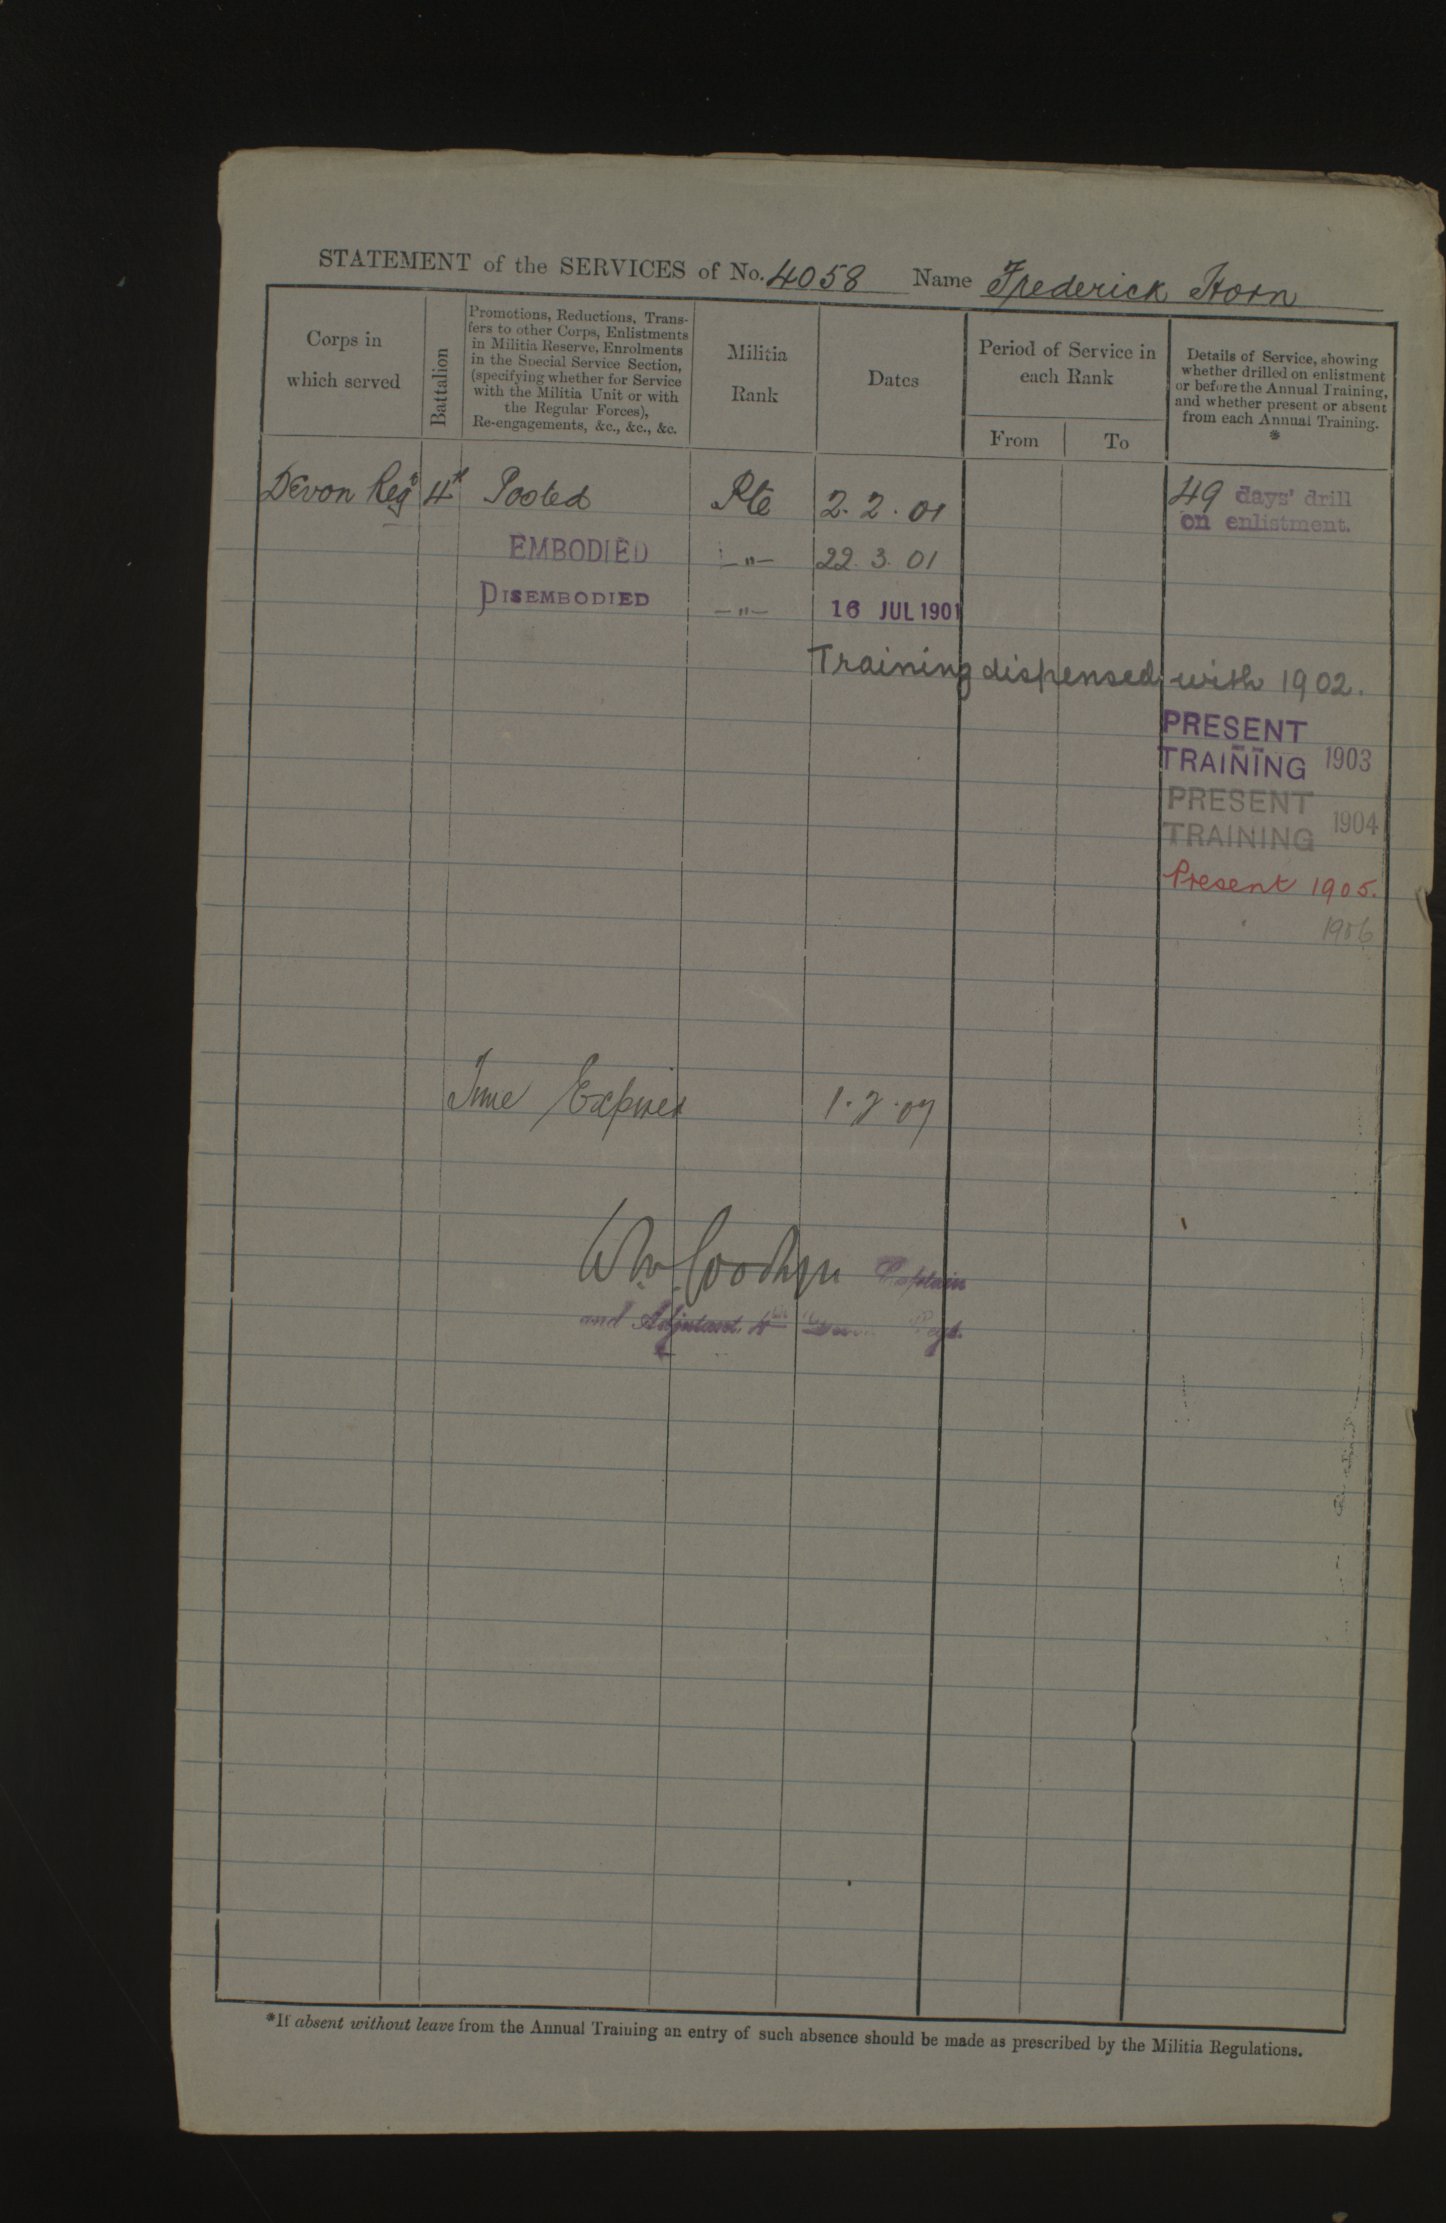 STATEMENT of the SERVICES of No. 4058 Name Frederick Horn
Corps in
which served
Battalion
Promotions, Reductions, Trans-
fers to other Corps, Enlistments
in Militia Reserve, Enrolments
in the Special Service Section,
(specifying whether for Service
with the Militia Unit or with
the Regular Forces),
Re-engagements, &c., &c., &c.
Militia
Rank
Dates
Period of Service in
each Rank
From To
Details of Service, showing
whether drilled on enlistment
or before the Annual Training,
and whether present or absent
from each Annual Training.
*
Devon Regt 4th Posted Pte 2. 2. 01 49 days' drill
on enlistment.
EMBODIED –"– 22. 3. 01
DISEMBODIED –"– 16 JUL 1901
Training dispensed with 1902.
PRESENT
TRAINING 1903
PRESENT
TRAINING 1904
Present 1905.
1906
Time Expired 1. 2. 07
Captain
and Adjutant. 4th Devon Regt.
*If absent without leave from the Annual Training an entry of such absence should be made as prescribed by the Militia Regulations.